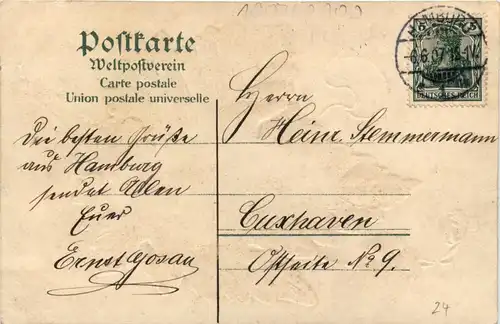 Postkarte
Weltpostverein
Carte postale
Union postale universelle
HAMBURG
6.6.07
DEUTSCHES REICH
Die besten Grüße
aus Hamburg
sendet Allen
Euer
Ernst
Herrn
Heinr. Stemmermann
Cuxhaven
Ostseite No 9.
24